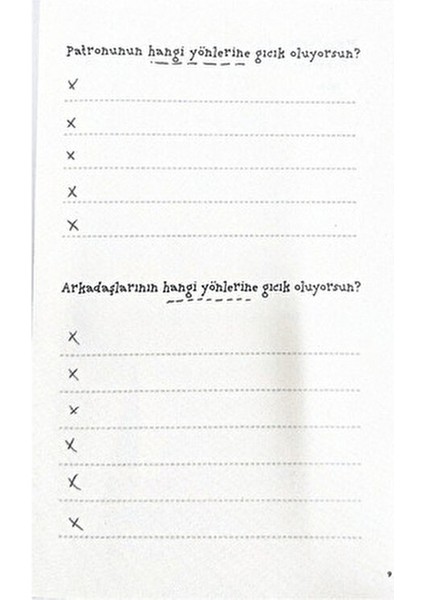 Patronunun hangi yönlerine gıcık oluyorsun?
x
x
x
x
x
Arkadaşlarının hangi yönlerine gıcık oluyorsun?
x
x
x
x
x
x
9